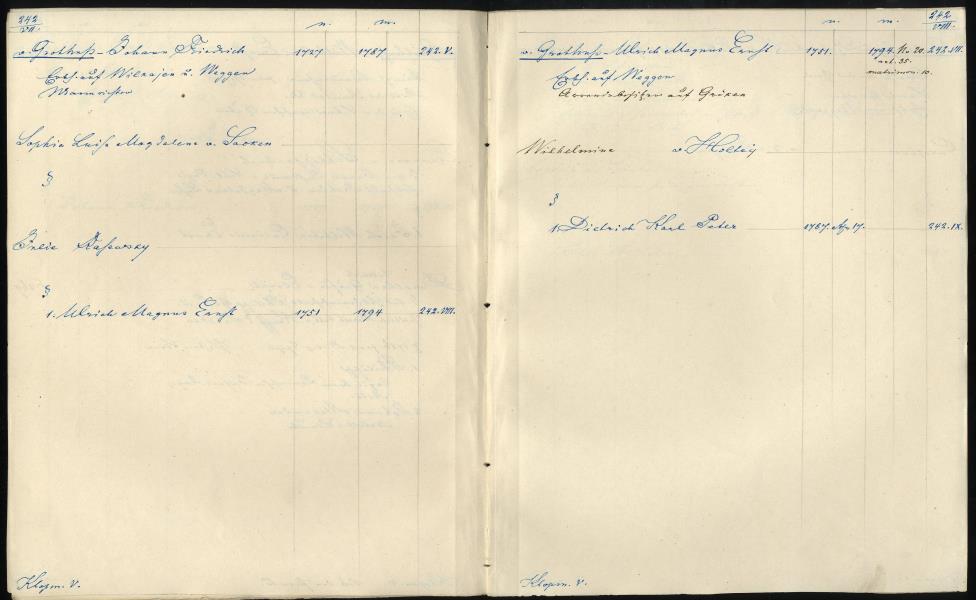 242
VII.
n. m.
v. Grotthuß - Johann Friedrich 1727 1787 242.V.
Erbh. auf Wilkajen u. Weggen
Mannrichter
Sophia Luise Magdalene v. Sacken
§
§
1. Ulrich Magnus Ernst 1751 1794 242.VIII.
Klopm. V.
n. m. 242
VIII.
v. Grotthuß - Ulrich Magnus Ernst 1751. 1794. N. 20. 242.VII.
aet. 35.
matrimon. 10.
Erbh. auf Weggen
Arrendebesitzer auf Gröxen
Wilhelmine v. Holtey
§
1. Dietrich Karl Peter 1787. Ap. 17. 242.IX.
Klopm. V.